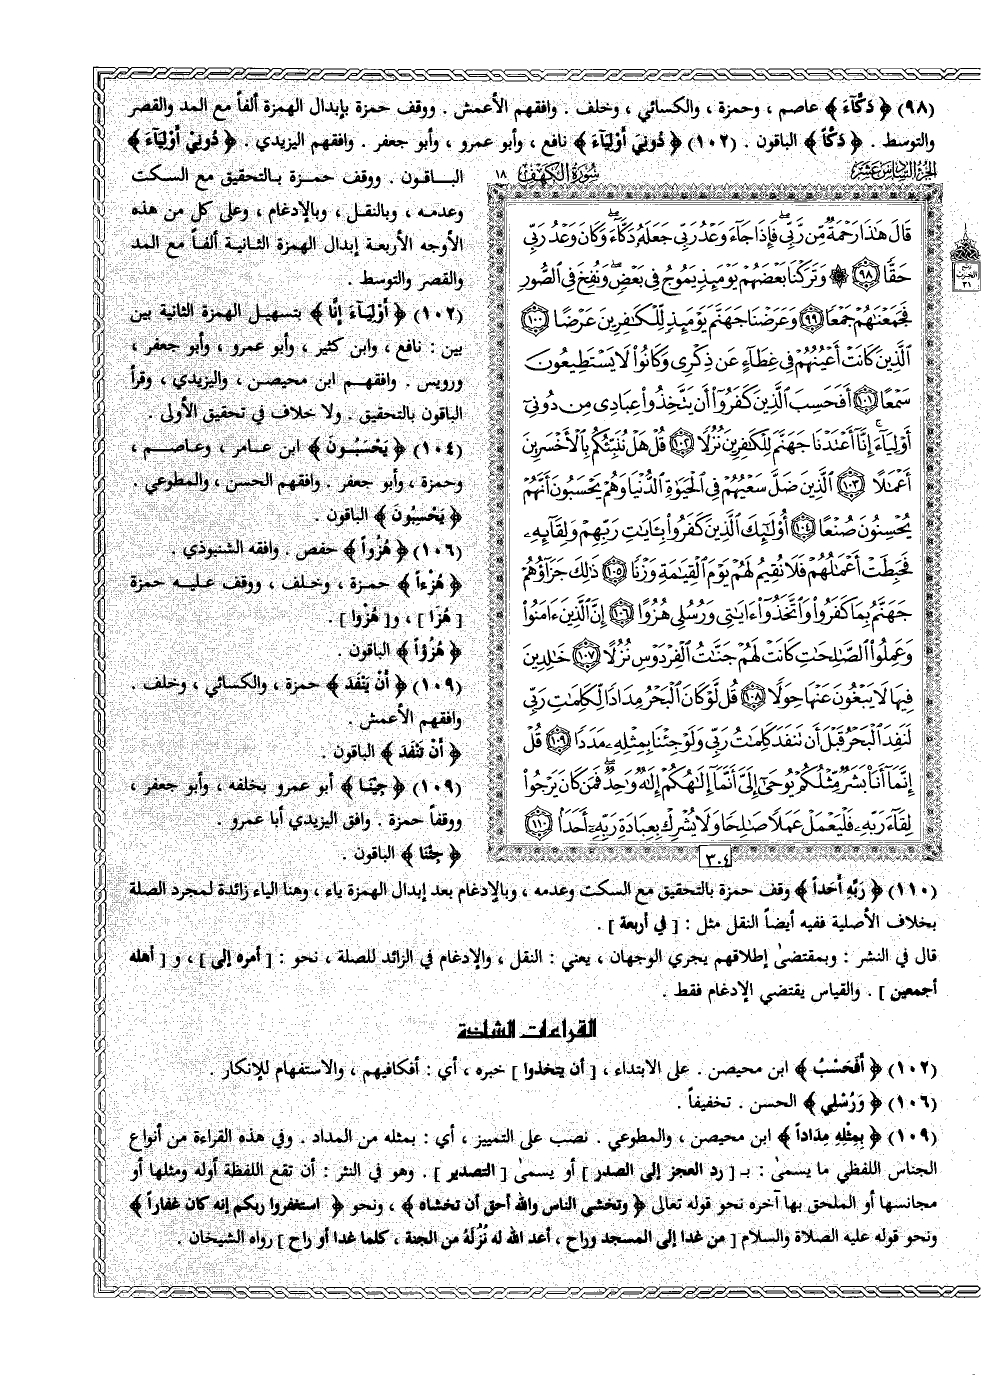 (٩٨) ﴿ دَكَّآءَ ﴾ عاصم ، وحمزة ، والكسائي ، وخلف . وافقهم الأعمش . ووقف حمزة بإبدال الهمزة ألفاً مع المد والقصر
والتوسط . ﴿ دَكّاً ﴾ الباقون . (١٠٢) ﴿ دُونِيَ أَوْلِيَآءَ ﴾ نافع ، وأبو عمرو ، وأبو جعفر . وافقهم اليزيدي . ﴿ دُونِيْ أَوْلِيَآءَ ﴾
الباقون . ووقف حمزة بالتحقيق مع السكت
وعدمه ، وبالنقل ، وبالإدغام ، وعلى كل من هذه
الأوجه الأربعة إبدال الهمزة الثانية ألفاً مع المد
والقصر والتوسط .
(١٠٢) ﴿ أَوْلِيَآءَ إِنَّا ﴾ بتسهيل الهمزة الثانية بين
بين : نافع ، وابن كثير ، وأبو عمرو ، وأبو جعفر ،
ورويس . وافقهم ابن محيصن ، واليزيدي ، وقرأ
الباقون بالتحقيق . ولا خلاف في تحقيق الأولى .
(١٠٤) ﴿ يَحْسَبُونَ ﴾ ابن عامر ، وعاصم ،
وحمزة ، وأبو جعفر . وافقهم الحسن ، والمطوعي .
﴿ يَحْسِبُونَ ﴾ الباقون .
(١٠٦) ﴿ هُزُواً ﴾ حفص . وافقه الشنبوذي .
﴿ هُزْءاً ﴾ حمزة ، وخلف ، ووقف عليه حمزة
[ هُزَا ] ، و[ هُزْوا ] .
﴿ هُزُؤاً ﴾ الباقون .
(١٠٩) ﴿ أَنْ يَنْفَدَ ﴾ حمزة ، والكسائي ، وخلف .
وافقهم الأعمش .
﴿ أَنْ تَنْفَدَ ﴾ الباقون .
(١٠٩) ﴿ جِيْنَا ﴾ أبو عمرو بخلفه ، وأبو جعفر ،
ووقفاً حمزة . وافق اليزيدي أبا عمرو .
﴿ جِئْنَا ﴾ الباقون .
الجزء السادس عشر
سورة الكهف ١٨
قَالَ هَٰذَا رَحْمَةٌ مِّن رَّبِّي ۖ فَإِذَا جَآءَ وَعْدُ رَبِّي جَعَلَهُۥ دَكَّآءَ ۖ وَكَانَ وَعْدُ رَبِّي
حَقًّا ﴿٩٨﴾ ۞ وَتَرَكْنَا بَعْضَهُمْ يَوْمَئِذٍ يَمُوجُ فِي بَعْضٍ ۖ وَنُفِخَ فِي ٱلصُّورِ
فَجَمَعْنَٰهُمْ جَمْعًا ﴿٩٩﴾ وَعَرَضْنَا جَهَنَّمَ يَوْمَئِذٍ لِّلْكَٰفِرِينَ عَرْضًا ﴿١٠٠﴾
ٱلَّذِينَ كَانَتْ أَعْيُنُهُمْ فِي غِطَآءٍ عَن ذِكْرِي وَكَانُوا۟ لَا يَسْتَطِيعُونَ
سَمْعًا ﴿١٠١﴾ أَفَحَسِبَ ٱلَّذِينَ كَفَرُوٓا۟ أَن يَتَّخِذُوا۟ عِبَادِي مِن دُونِيٓ
أَوْلِيَآءَ ۚ إِنَّآ أَعْتَدْنَا جَهَنَّمَ لِلْكَٰفِرِينَ نُزُلًا ﴿١٠٢﴾ قُلْ هَلْ نُنَبِّئُكُم بِٱلْأَخْسَرِينَ
أَعْمَٰلًا ﴿١٠٣﴾ ٱلَّذِينَ ضَلَّ سَعْيُهُمْ فِي ٱلْحَيَوٰةِ ٱلدُّنْيَا وَهُمْ يَحْسَبُونَ أَنَّهُمْ
يُحْسِنُونَ صُنْعًا ﴿١٠٤﴾ أُو۟لَٰٓئِكَ ٱلَّذِينَ كَفَرُوا۟ بِـَٔايَٰتِ رَبِّهِمْ وَلِقَآئِهِۦ
فَحَبِطَتْ أَعْمَٰلُهُمْ فَلَا نُقِيمُ لَهُمْ يَوْمَ ٱلْقِيَٰمَةِ وَزْنًا ﴿١٠٥﴾ ذَٰلِكَ جَزَآؤُهُمْ
جَهَنَّمُ بِمَا كَفَرُوا۟ وَٱتَّخَذُوٓا۟ ءَايَٰتِي وَرُسُلِي هُزُوًا ﴿١٠٦﴾ إِنَّ ٱلَّذِينَ ءَامَنُوا۟
وَعَمِلُوا۟ ٱلصَّٰلِحَٰتِ كَانَتْ لَهُمْ جَنَّٰتُ ٱلْفِرْدَوْسِ نُزُلًا ﴿١٠٧﴾ خَٰلِدِينَ
فِيهَا لَا يَبْغُونَ عَنْهَا حِوَلًا ﴿١٠٨﴾ قُل لَّوْ كَانَ ٱلْبَحْرُ مِدَادًا لِّكَلِمَٰتِ رَبِّي
لَنَفِدَ ٱلْبَحْرُ قَبْلَ أَن تَنفَدَ كَلِمَٰتُ رَبِّي وَلَوْ جِئْنَا بِمِثْلِهِۦ مَدَدًا ﴿١٠٩﴾ قُلْ
إِنَّمَآ أَنَا۠ بَشَرٌ مِّثْلُكُمْ يُوحَىٰٓ إِلَيَّ أَنَّمَآ إِلَٰهُكُمْ إِلَٰهٌ وَٰحِدٌ ۖ فَمَن كَانَ يَرْجُوا۟
لِقَآءَ رَبِّهِۦ فَلْيَعْمَلْ عَمَلًا صَٰلِحًا وَلَا يُشْرِكْ بِعِبَادَةِ رَبِّهِۦٓ أَحَدًۢا ﴿١١٠﴾
٣٠٤
(١١٠) ﴿ رَبِّهِ أَحَداً ﴾ وقف حمزة بالتحقيق مع السكت وعدمه ، وبالإدغام بعد إبدال الهمزة ياء ، وهنا الياء زائدة لمجرد الصلة
بخلاف الأصلية ففيه أيضاً النقل مثل : [ في أربعة ] .
قال في النشر : وبمقتضىٰ إطلاقهم يجري الوجهان ، يعني : النقل ، والإدغام في الزائد للصلة ، نحو : [ أمره إلى ] ، و [ أهله
أجمعين ] . والقياس يقتضي الإدغام فقط .
القراءات الشاذة
(١٠٢) ﴿ أَفَحَسْبُ ﴾ ابن محيصن . على الابتداء ، [ أن يتخذوا ] خبره ، أي : أفكافيهم ، والاستفهام للإنكار .
(١٠٦) ﴿ وَرُسْلِي ﴾ الحسن . تخفيفاً .
(١٠٩) ﴿ بِمِثْلِهِ مِدَاداً ﴾ ابن محيصن ، والمطوعي . نصب على التمييز ، أي : بمثله من المداد . وفي هذه القراءة من أنواع
الجناس اللفظي ما يسمىٰ : بـ [ رد العجز إلى الصدر ] أو يسمىٰ [ التصدير ] . وهو في النثر : أن تقع اللفظة أوله ومثلها أو
مجانسها أو الملحق بها آخره نحو قوله تعالى ﴿ وتخشى الناس والله أحق أن تخشاه ﴾ ، ونحو ﴿ استغفروا ربكم إنه كان غفاراً ﴾
ونحو قوله عليه الصلاة والسلام [ من غدا إلى المسجد وراح ، أعد الله له نُزُلَهُ من الجنة ، كلما غدا أو راح ] رواه الشيخان .